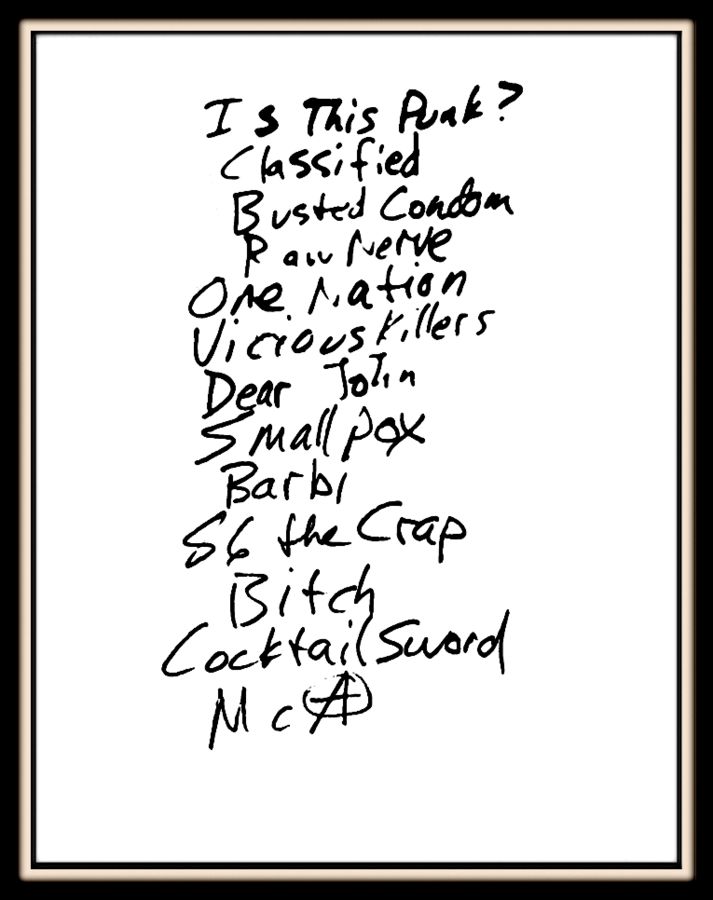 Is This Punk?
Classified
Busted Condom
Raw Nerve
One Nation
Vicious Killers
Dear John
Small pox
Barbi
86 the Crap
Bitch
Cocktail Sword
McA